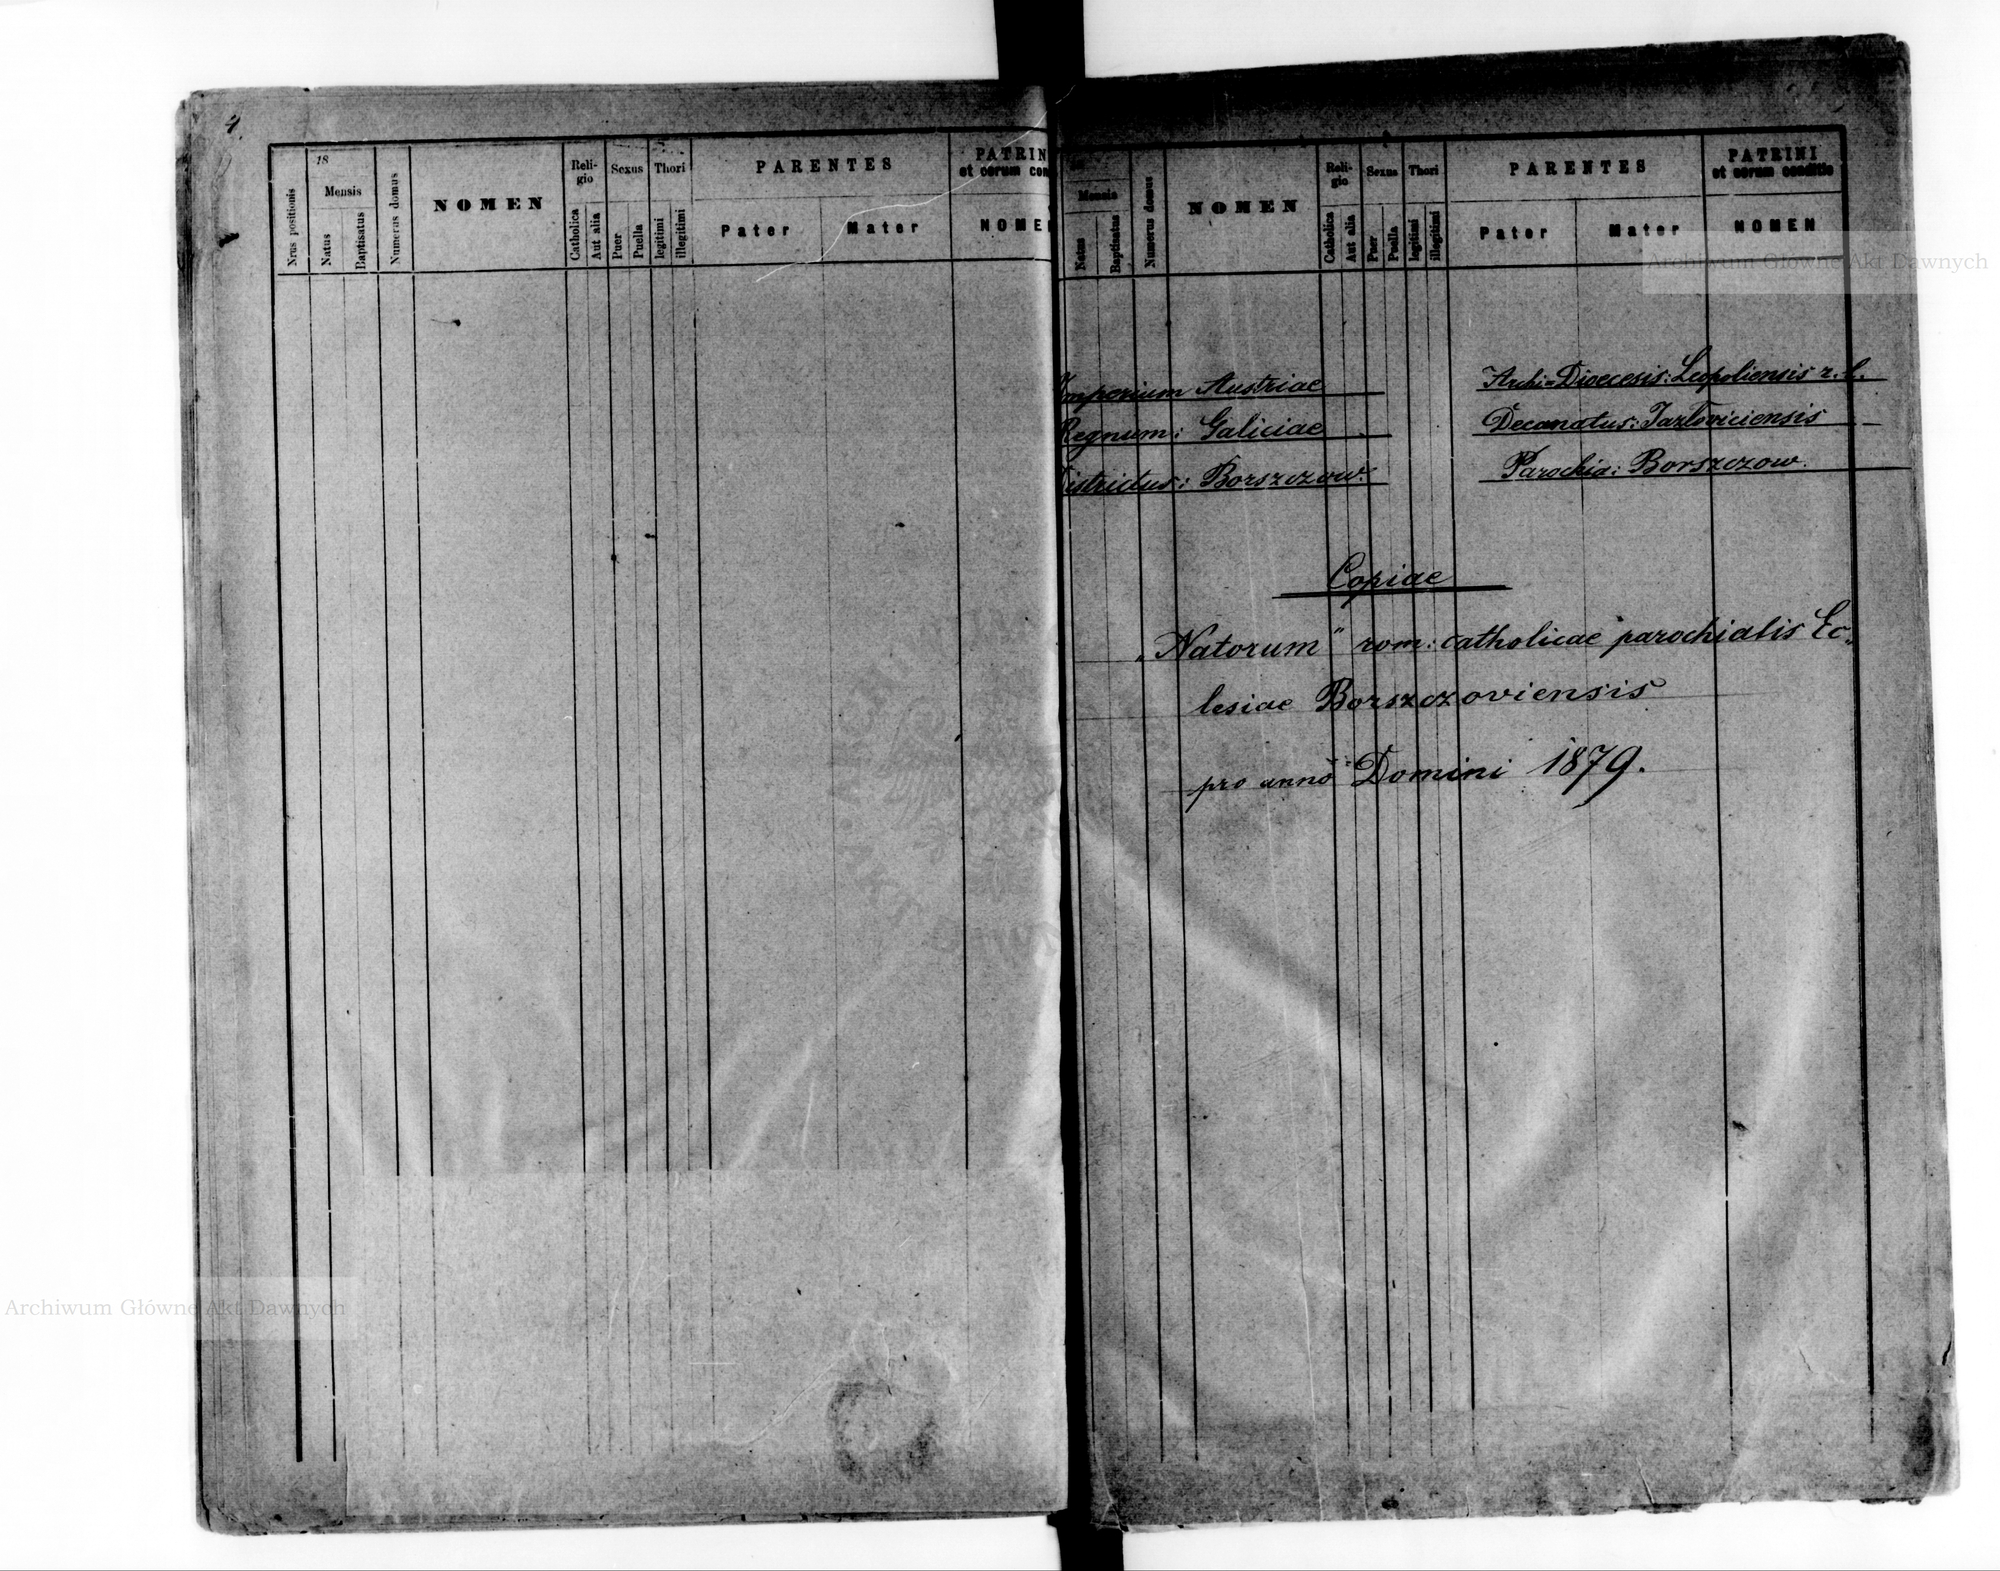 4.
Nrus positionis
18
Mensis
Natus
Baptisatus
Numerus domus
NOMEN
Reli-
gio
Catholica
Aut alia
Sexus
Puer
Puella
Thori
legitimi
illegitimi
PARENTES
Pater
Mater
PATRIN
et eorum con
NOME
Mensis
Natus
Baptisatus
Numerus domus
NOMEN
Reli-
gio
Catholica
Aut alia
Sexus
Puer
Puella
Thori
legitimi
illegitimi
PARENTES
Pater
Mater
PATRINI
et eorum conditio
NOMEN
Imperium Austriae
Regnum: Galiciae
Districtus: Borszczow.
Archi=Dioecesis: Leopoliensis r. l.
Decanatus: Jazloviciensis
Parochia: Borszczow.
Copiae
„Natorum" rom: catholicae parochialis Ec-
lesiae Borszczoviensis
pro anno Domini 1879.
Archiwum Główne Akt Dawnych
Archiwum Główne Akt Dawnych